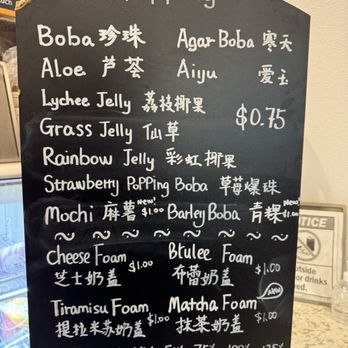 Boba 珍珠 Agar Boba 寒天
Aloe 芦荟 Aiyu 爱玉
Lychee Jelly 荔枝椰果
$0.75
Grass Jelly 仙草
Rainbow Jelly 彩虹椰果
Strawberry Popping Boba 草莓爆珠
Mochi 麻薯 New! $1.00 Barley Boba 青稞 New! $1.00
Cheese Foam Brulee Foam
芝士奶盖 $1.00 布蕾奶盖 $1.00
Tiramisu Foam Matcha Foam New
提拉米苏奶盖 $1.00 抹茶奶盖 $1.00
NOTICE